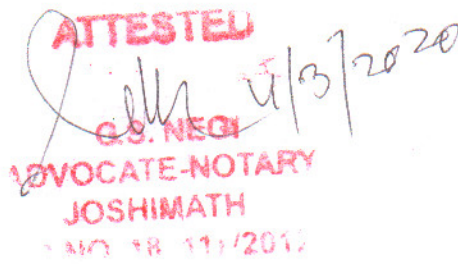 ATTESTED
4/3/2020
G.S. NEGI
ADVOCATE-NOTARY
JOSHIMATH
NO. 18